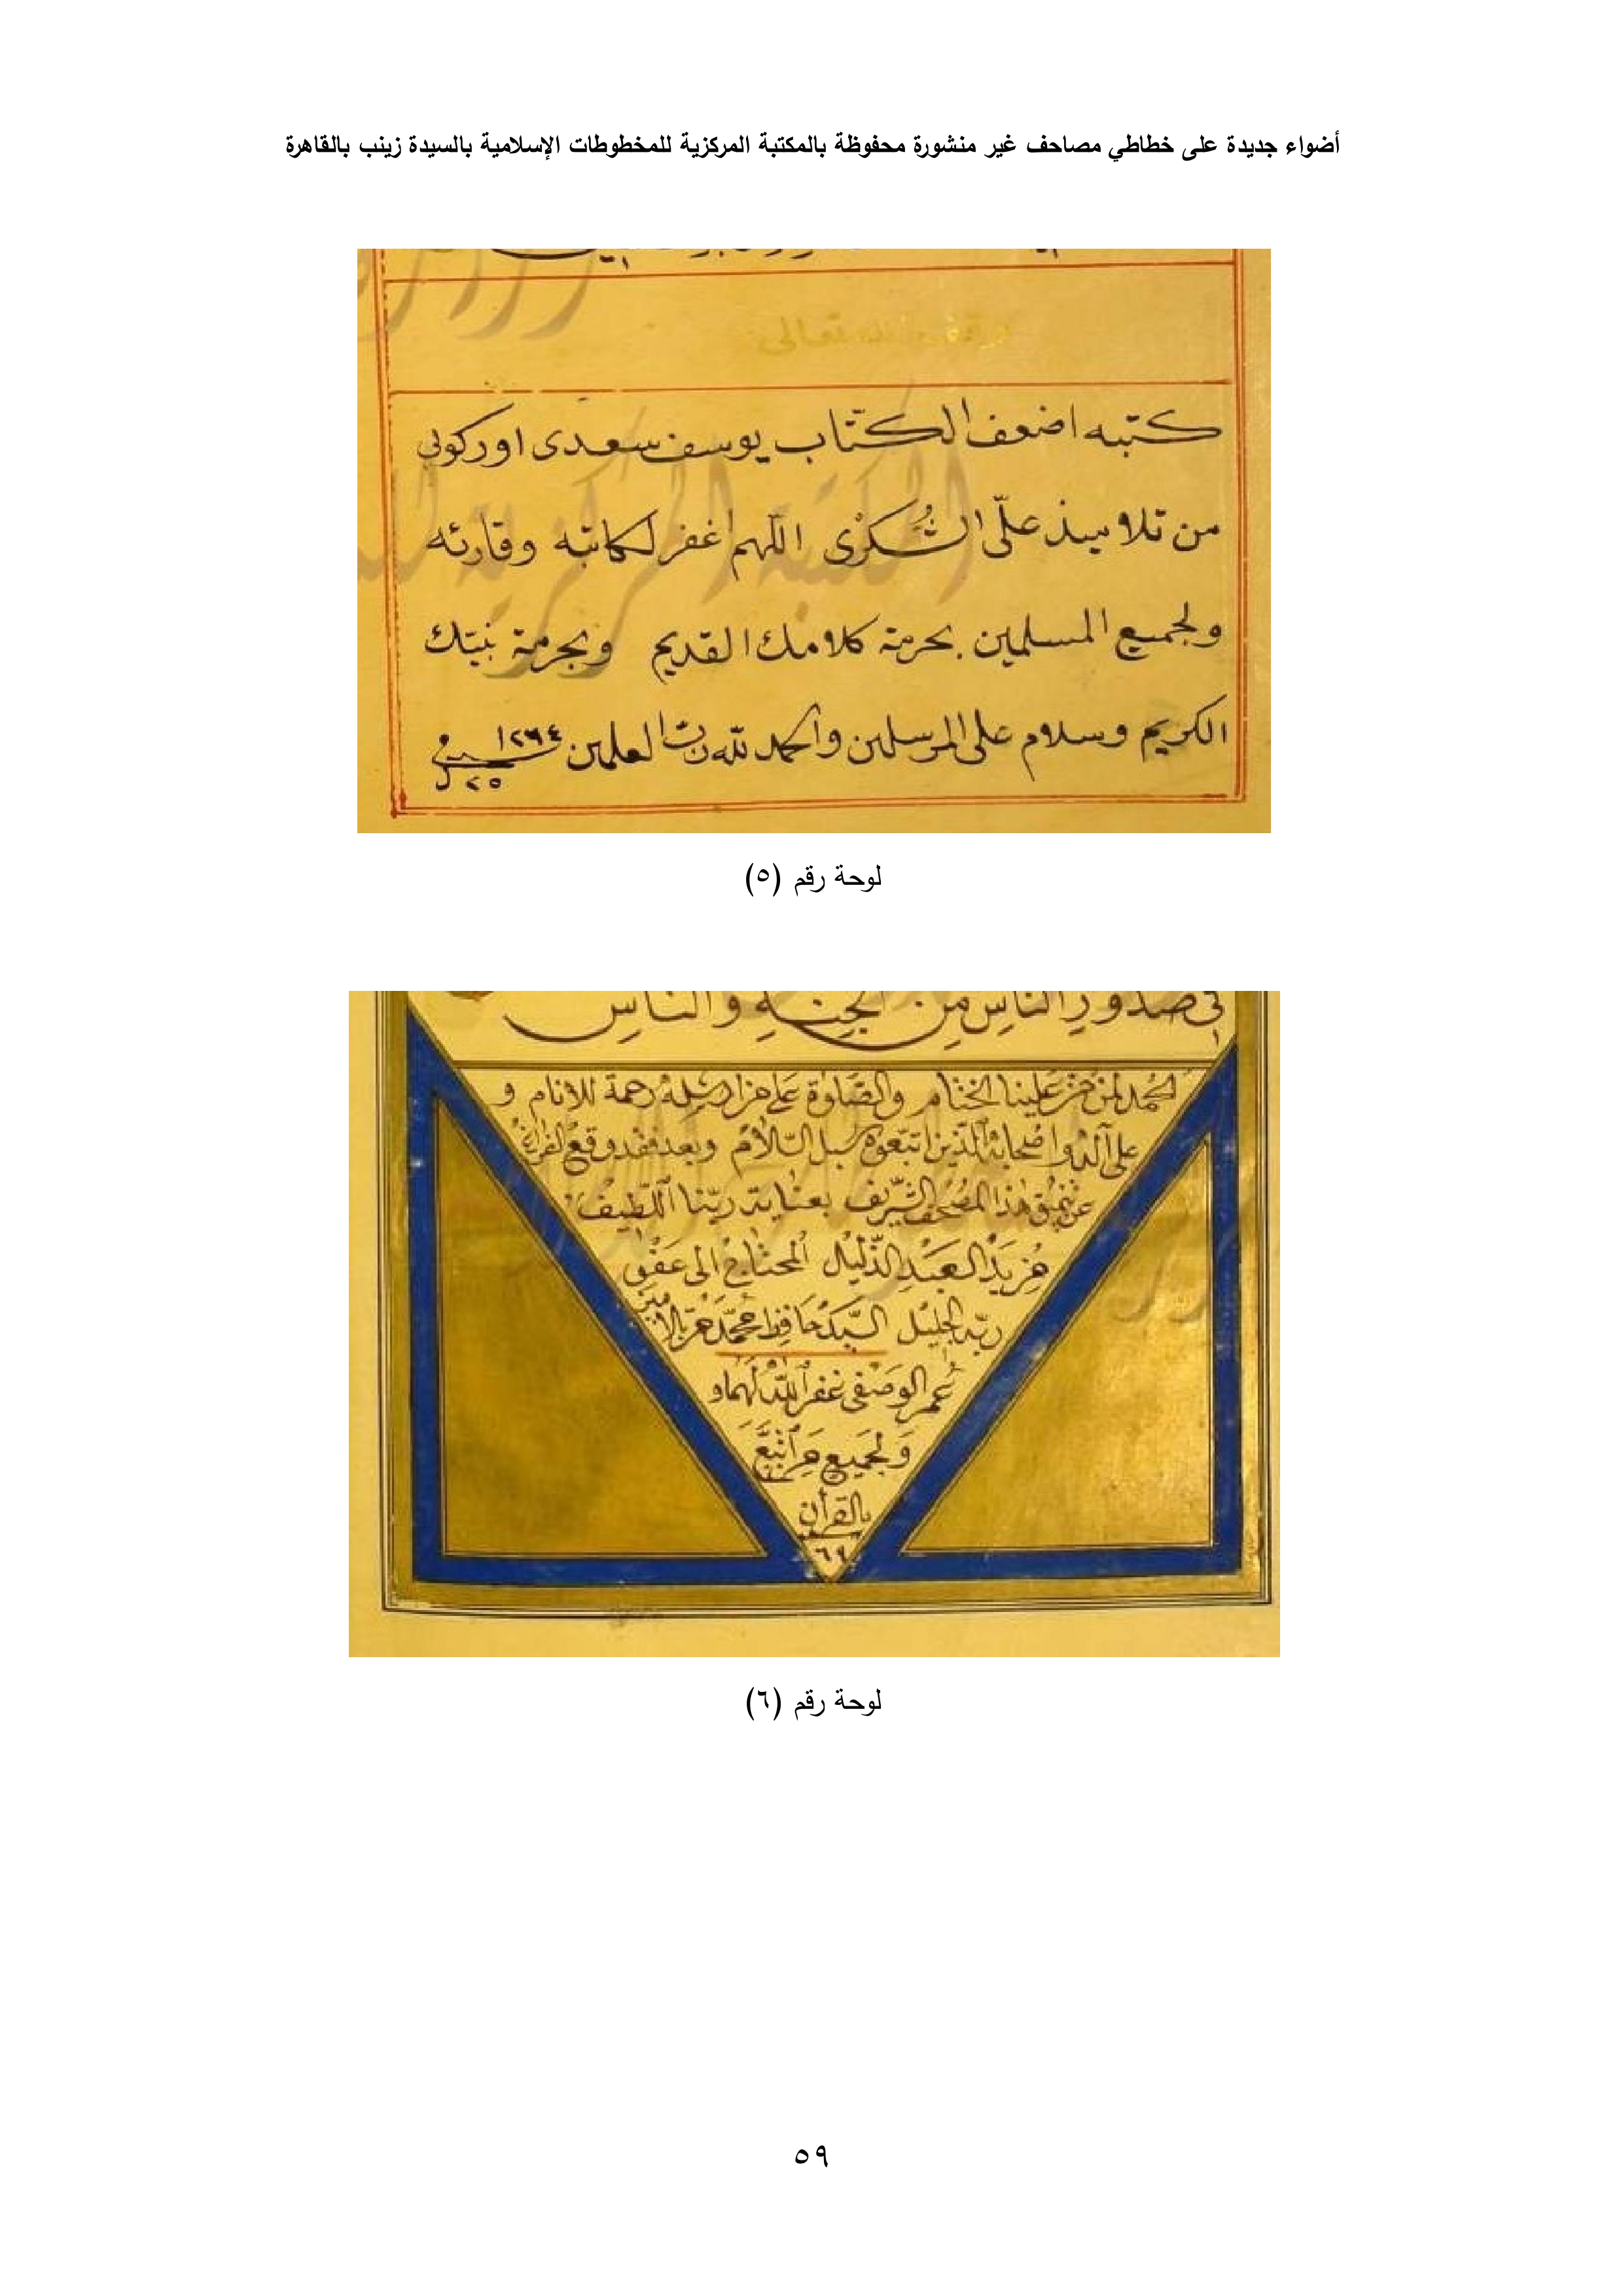 أضواء جديدة على خطاطي مصاحف غير منشورة محفوظة بالمكتبة المركزية للمخطوطات الإسلامية بالسيدة زينب بالقاهرة
تعالى
كتبه اضعف الكتّاب يوسف سعدى اوركوبي
من تلاميذ علّى الشُكرْى اللّهم اغفر لكاتبه وقارئه
ولجميع المسلمين بحرمة كلامك القديم وبحرمة نبيّك
الكريم وسلام على المرسلين والحمد للّه ربّ العلمين ١٢٦٤
٢٥
لوحة رقم (٥)
في صُدورِ الناسِ مِن الجِنةِ والناسِ
الحَمد لمن مَنّ عَلينا الختام والصّلوٰة عَلى من ارسله رحمة للانام و
على آله واصحابه الّذين اتبّعوه سبل السّلام وبعد فقد وقع الفراغ
عن تنميق هٰذا المصحف الشّريف بعناية ربّنا اللّطيف
مِن يَد العَبدِ الذّليل المحتاج الى عَفو
ربّه الجليل السّيّد حَافظ محمّد
عُمر الوصفي غفر اللّه لهما و
وَلجميع مَن اتّبَعَ
بالقرآن
٦٩
لوحة رقم (٦)
٥٩